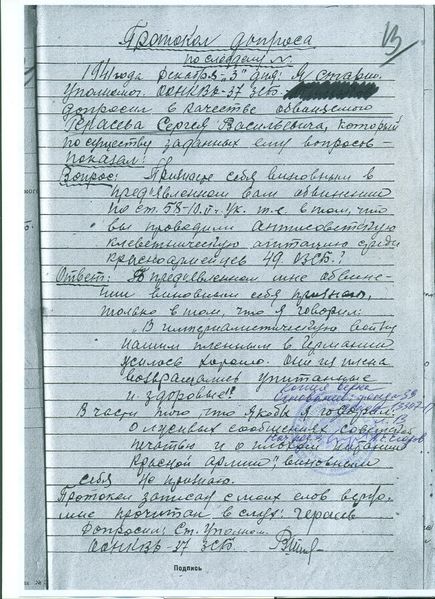 13
Протокол допроса
последн.
1941 года декабря "3" дня. Я старш.
Уполномоч. ООНКВД-37 ЗСБ.
допросил в качестве обвиняемого
Герасева Сергея Васильевича, который
по существу заданных ему вопросов -
показал:
Вопрос: Признаете себя виновным в
предъявленном вам обвинении
по ст. 58-10. II ч. Ук. т.е. в том, что
вы проводили антисоветскую
клеветническую агитацию среди
красноармейцев 49 ОЗСБ.?
Ответ: В предъявленном мне обвине-
нии виновным себя признаю,
только в том, что я говорил:
"В империалистическую войну
нашим пленным в Германии
жилось хорошо. Они из плена
возвращались упитанные
и здоровые".
В части того, что якобы я говорил:
о лживых сообщениях советской
печатью и о плохом питании
Красной армии", виновным
себя не признаю.
Протокол записан с моих слов верно,
мне прочитан в слух: Герасев
Допросил: Ст. Уполном.
ООНКВД-37 ЗСБ.
Копия верна
Основание: фонд
Подпись